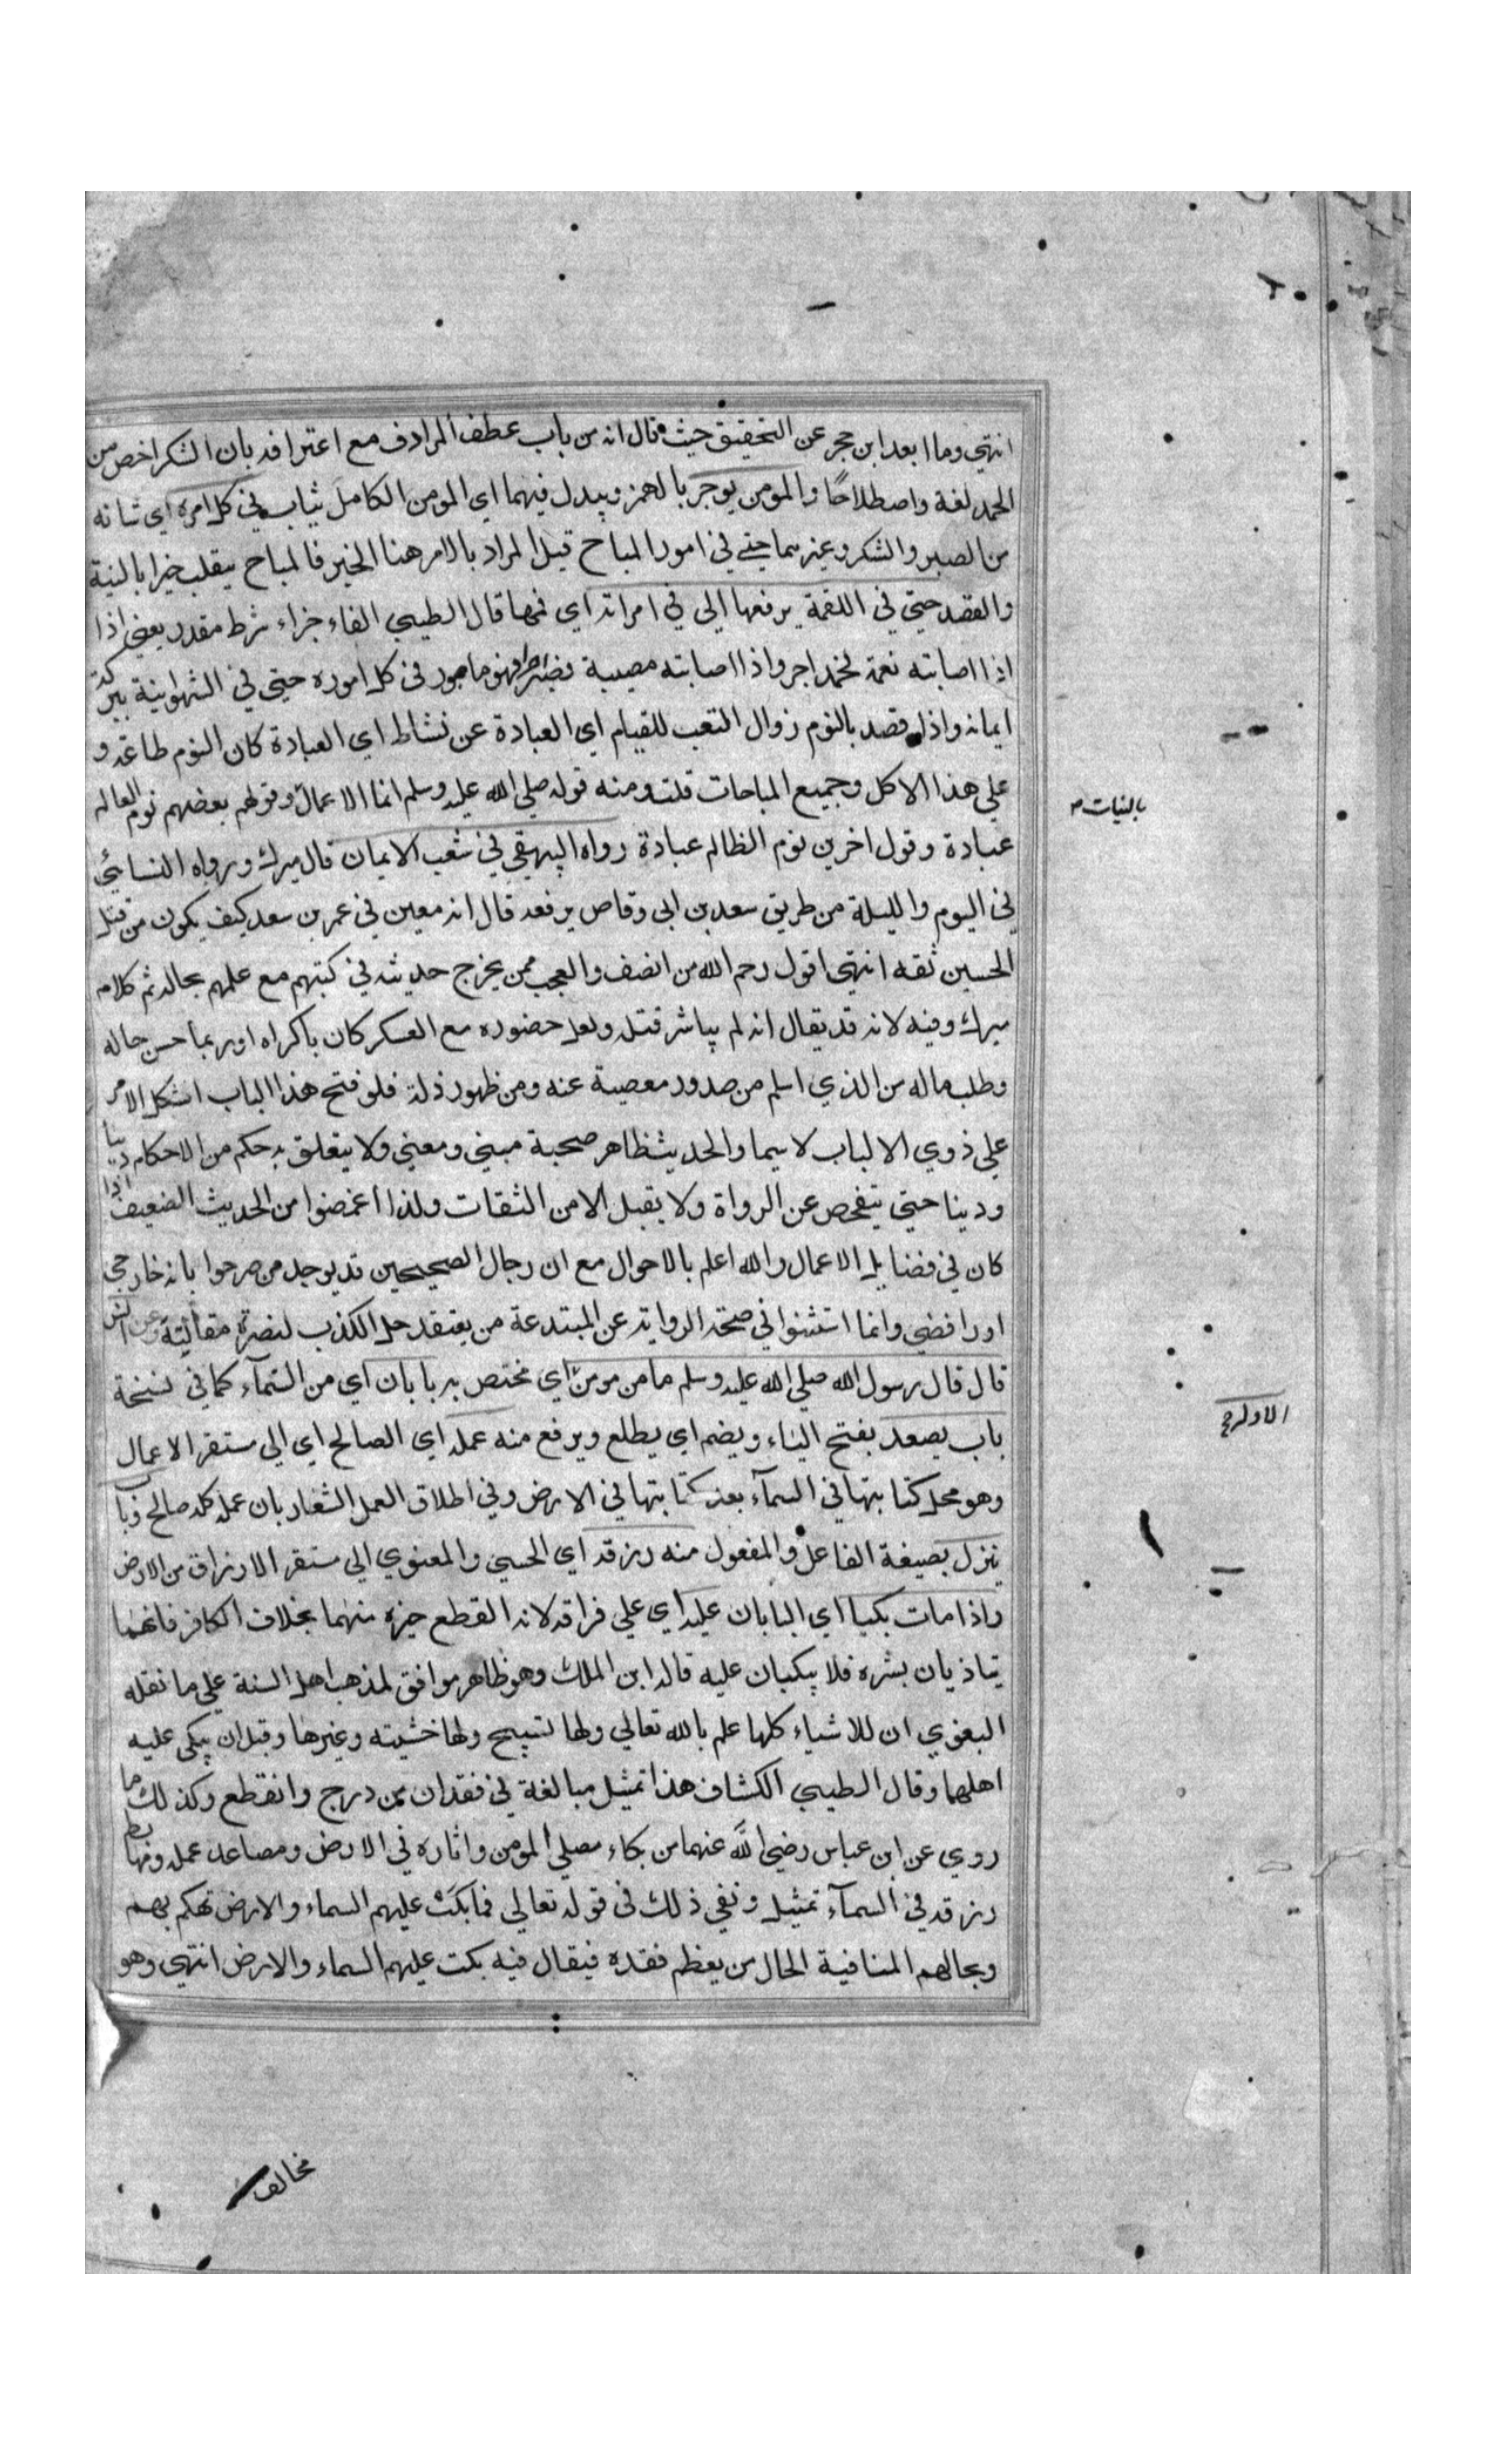 انتهي وما ابعد ابن حجر عن التحقيق حيث قال انه من باب عطف المرادف مع اعترافه بان الشكر اخص من
الحمد لغة واصطلاحًا والمومن يوجر بالهمز ويبدل فيهما اي المومن الكامل يثاب في كل امره اي شانه
من الصبر والشكر وغيرهما حتي في امور المباح قيل المراد بالامر هنا الخير فالمباح ينقلب خيرا بالنية
والقصد حتي في اللقمة يرفعها الي في امراته اي فمها قال الطيبي الفاء جزاء شرط مقدر يعني اذا
اذا اصابته نعمة فحمد اجر واذا اصابته مصيبة فصبر اجر فهو ماجور في كل اموره حتي في الشهوانية ببركة
ايمانه واذا قصد بالنوم زوال التعب للقيام اي العبادة عن نشاط اي العبادة كان النوم طاعة و
علي هذا الاكل وجميع المباحات قلت ومنه قوله صلي الله عليه وسلم انما الاعمال وقولهم بعضهم نوم العالم
بالنيات
عبادة وقول اخرين نوم الظالم عبادة رواه البيهقي في شعب الايمان قال ميرك ورواه النسائي
في اليوم والليلة من طريق سعد بن ابي وقاص يرفعه قال ابن معين في عمر بن سعد كيف يكون من قتل
الحسين ثقه انتهي اقول رحم الله من انصف والعجب ممن يخرج حديثه في كتبهم مع علمهم بحاله ثم كلام
ميرك وفيه لانه قد يقال انه لم يباشر قتله ولعل حضوره مع العسكر كان باكراه او ربما حسن حاله
وطلب ماله من الذي اسلم من صدور معصية عنه ومن ظهور ذلة فلو فتح هذا الباب اشكل الامر
علي ذوي الالباب لا سيما والحديث ظاهر صحبة مبني ومعني ولا يتعلق به حكم من الاحكام دنيا
ودينا حتي يتفحص عن الرواة ولا يقبل الا من الثقات ولذا اغمضوا من الحديث الضعيف اذا
كان في فضايل الاعمال والله اعلم بالاحوال مع ان رجال الصحيحين قد يوجد من صرحوا بانه خارجي
او رافضي وانما استثنوا في صحة الرواية عن المبتدعة من يعتقد حل الكذب لنصرة مقالته وعن انس
قال قال رسول الله صلي الله عليه وسلم ما من مومن اي مختص به بابان اي من السماء كما في نسخة
باب يصعد بفتح الياء ويضم اي يطلع ويرفع منه عمله اي الصالح اي الي مستقر الاعمال
الاول
وهو محل كتابتها في السماء بعد كتابتها في الارض وفي اطلاق العمل اشعار بان عمله كله صالح وباب
ينزل بصيغة الفاعل والمفعول منه رزقه اي الحسي والمعنوي الي مستقر الارزاق من الارض
واذا مات بكيا اي البابان عليه اي علي فراقه لانه انقطع خيره منهما بخلاف الكافر فانهما
يتاذيان بشره فلا يبكيان عليه قاله ابن الملك وهو ظاهر موافق لمذهب اهل السنة علي ما نقله
البغوي ان للاشياء كلها علم بالله تعالي ولها تسبيح ولها خشيته وغيرها وقيل ان يبكي عليه
اهلهما وقال الطيبي الكشاف هذا تمثيل مبالغة في فقدان من درج وانقطع وكذلك ما
روي عن ابن عباس رضي الله عنهما من بكاء مصلي المومن واثاره في الارض ومصاعد عمله ومهابط
رزقه في السماء تمثيل ونفي ذلك في قوله تعالي فما بكت عليهم السماء والارض تهكم بهم
وبحالهم المنافية الحال من يعظم فقده فيقال فيه بكت عليهم السماء والارض انتهي وهو
مخالف